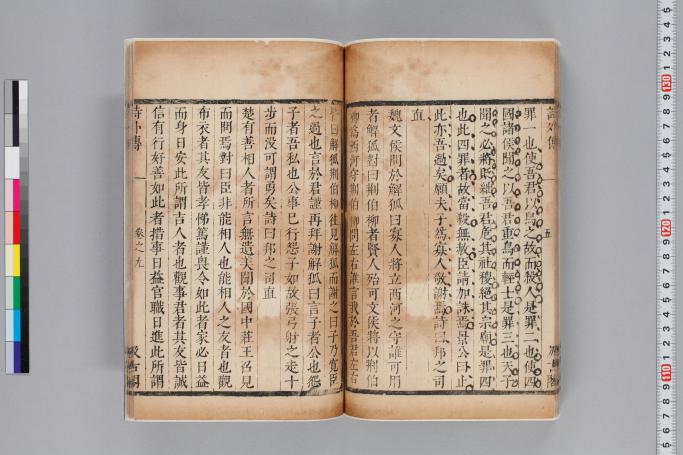 詩外傳
五
罪一也使吾君以鳥之故而殺人是罪二也使四
國諸侯聞之以吾君重鳥而輕士是罪三也天子
聞之必將貶絀吾君危其社稷絕其宗廟是罪四
也此四罪者故當殺無赦臣請加誅焉景公曰止
此亦吾過矣願夫子為寡人敬謝焉詩曰邦之司
直
魏文侯問於解狐曰寡人將立西河之守誰可用
者解狐對曰荆伯柳者賢人殆可文侯將以荆伯
柳為西河守荆伯柳問左右誰言我於吾君左右
皆曰解狐荆伯柳往見解狐而謝之曰子乃寬臣
之過也言於君謹再拜謝解狐曰言子者公也怨
子者吾私也公事已行怨子如故張弓射之走十
步而没可謂勇矣詩曰邦之司直
楚有善相人者所言無遺美聞於國中莊王召見
而問焉對曰臣非能相人也能相人之友者也觀
布衣者其友皆孝悌篤謹畏令如此者家必日益
而身日安此所謂吉人者也觀事君者其友皆誠
信有行好善如此者措事日益官職日進此所謂
詩外傳
卷之九
汲古閣
130
120
110